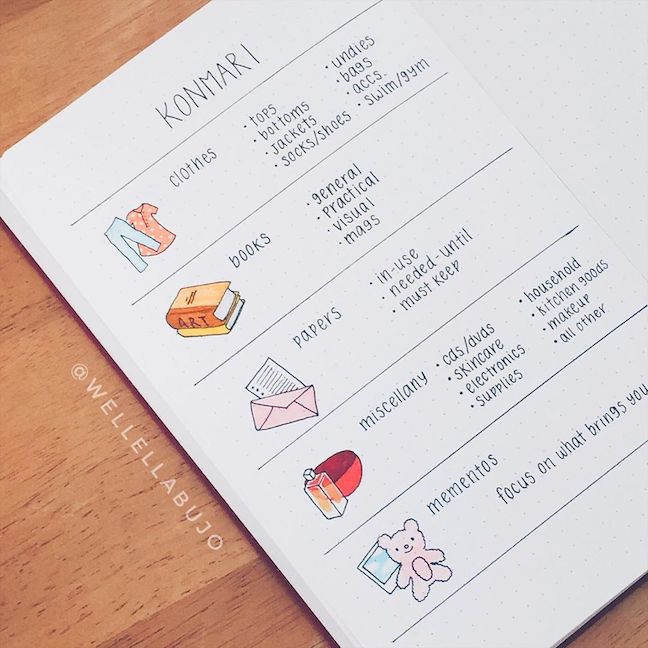 KONMARI
clothes
• tops
• bottoms
• jackets
• socks/shoes
• undies
• bags
• accs.
• swim/gym
books
• general
• practical
• visual
• mags
ART
papers
• in-use
• needed-until
• must keep
miscellany
• cds/dvds
• skincare
• electronics
• supplies
• household
• kitchen goods
• makeup
• all other
mementos
focus on what brings you
@WELLELLABUJO